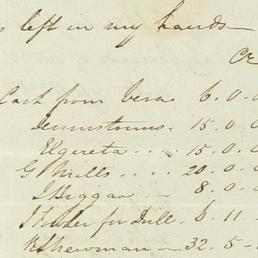 s left in my hands—
Cr
Cash from Vera 6.0.0
Dennistouns. 15.0.0
Elgireta . . . 15.0.0
G Mills . . . . 20.0.0
J Biggar — 8.0.0
J for Bill. 6.11.
Newman — 32.5.